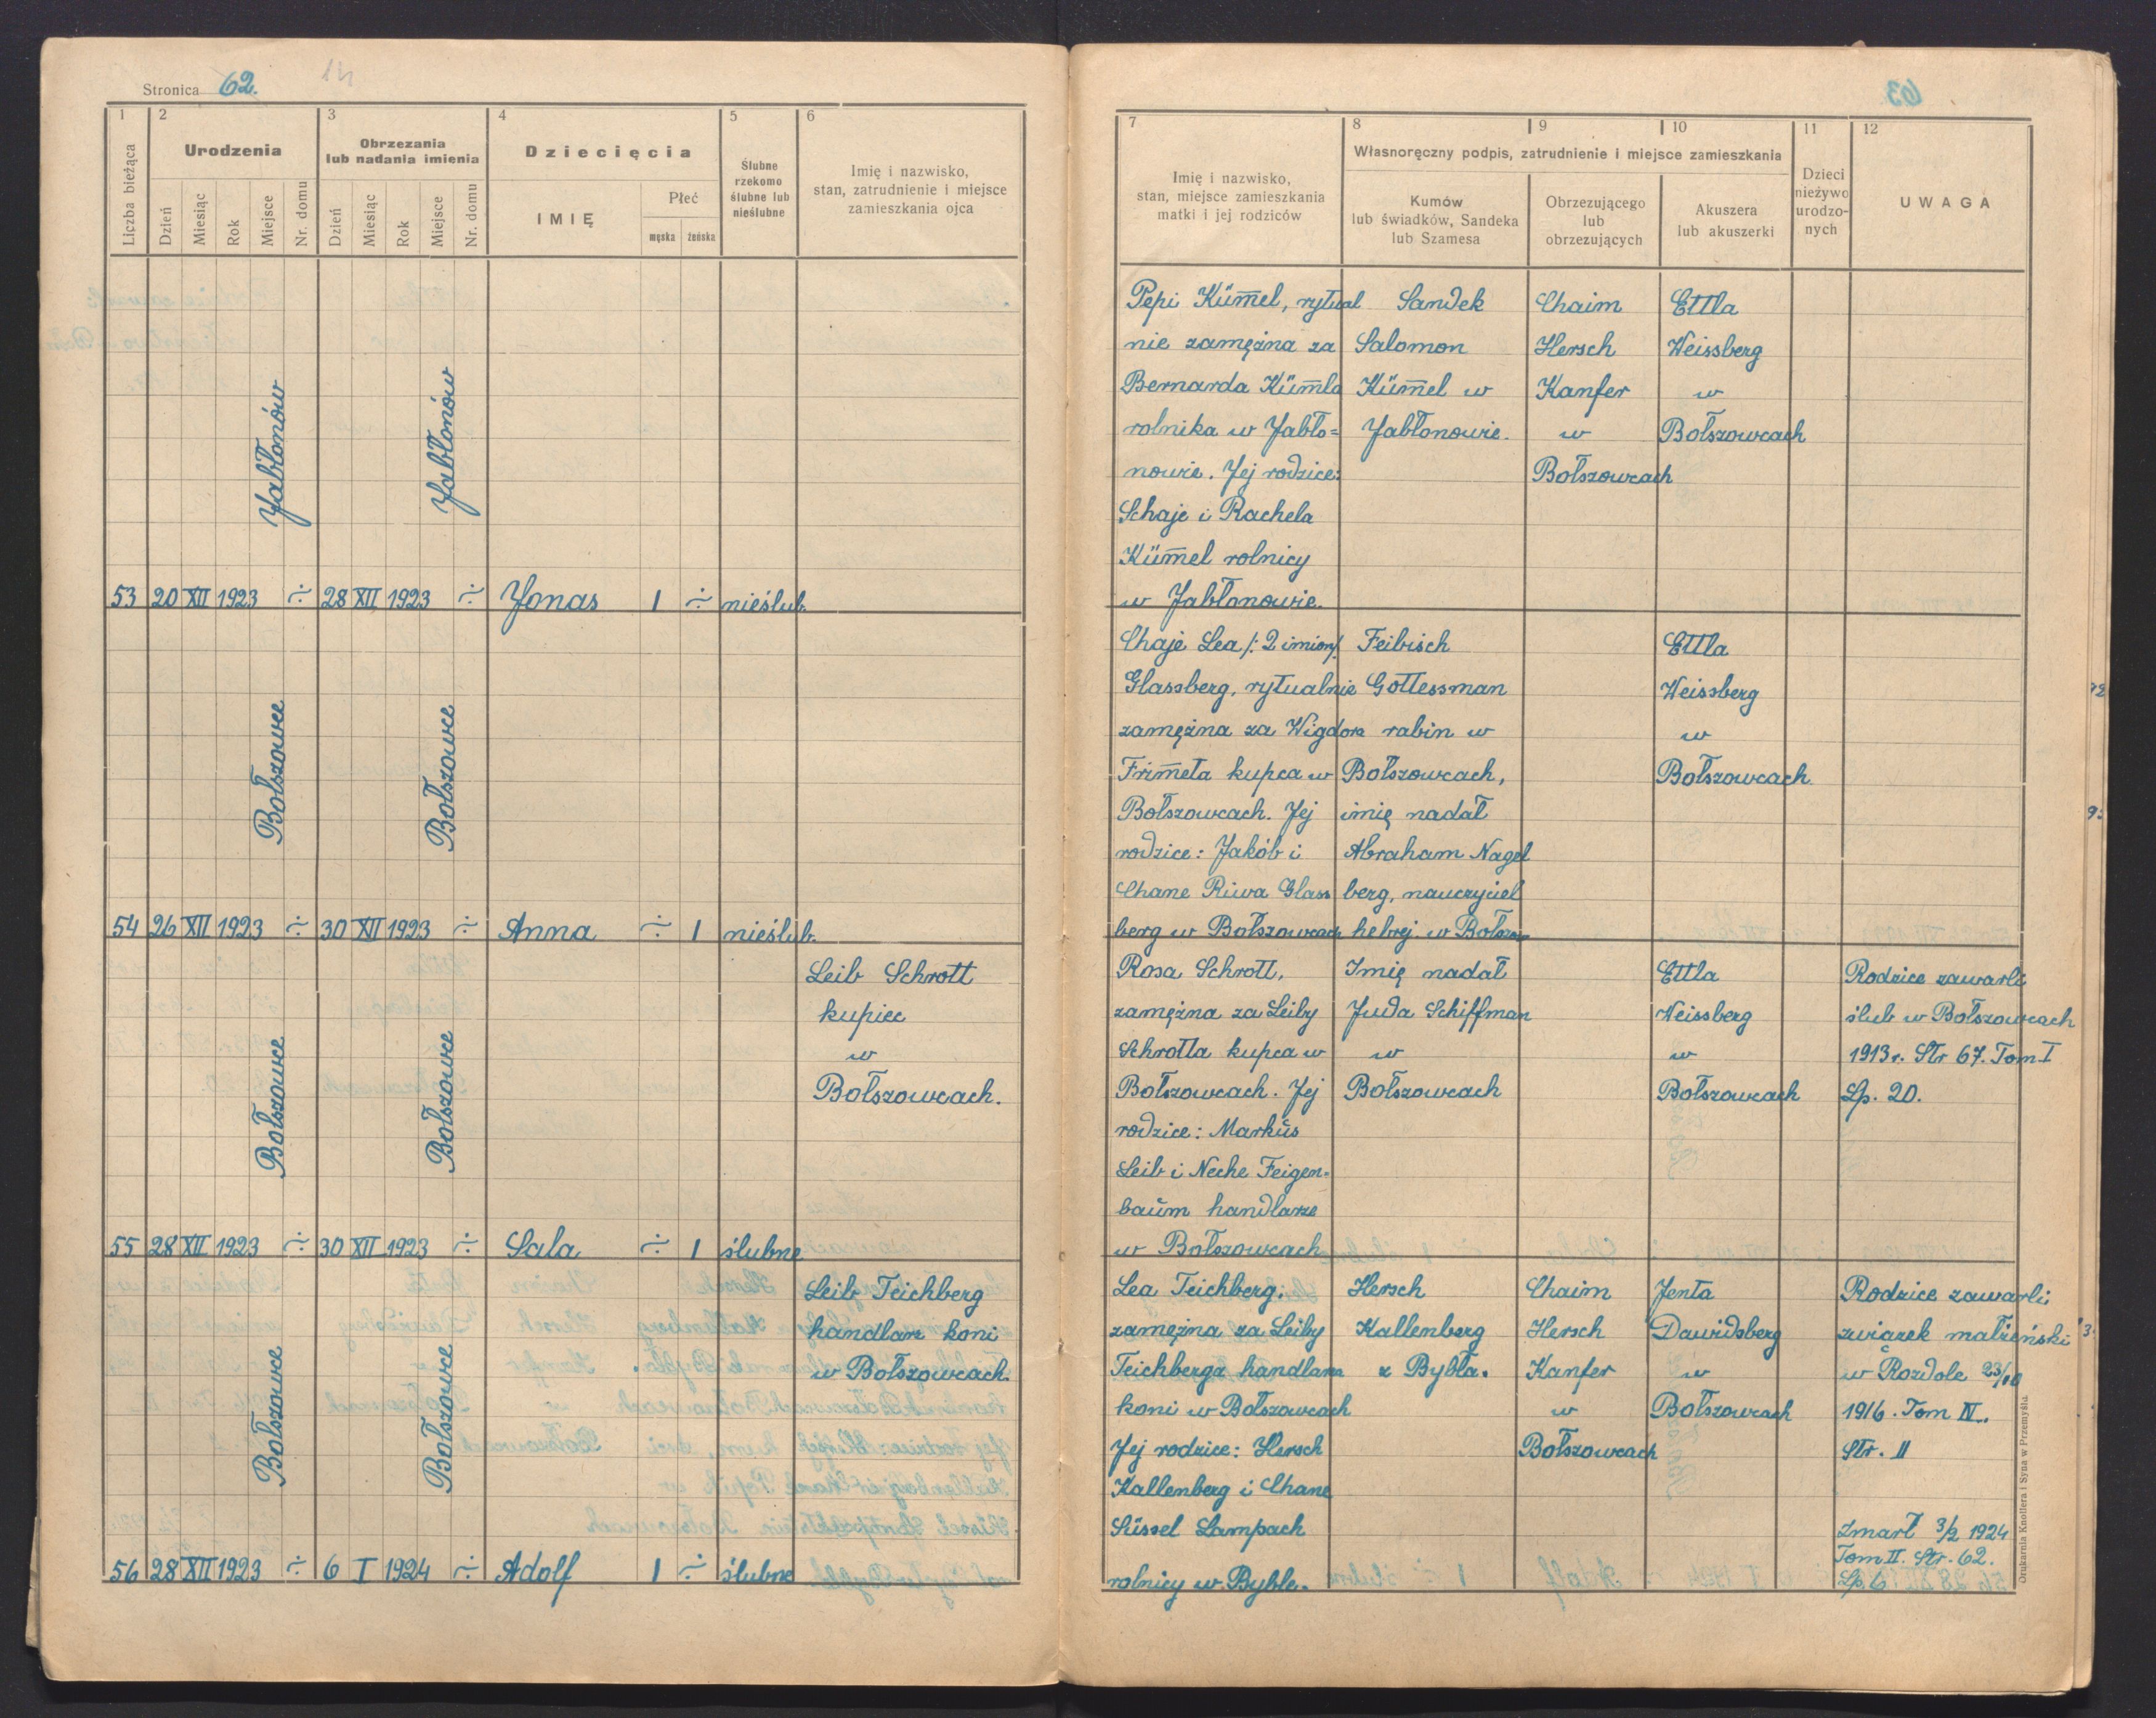 Stronica 62.
1 2 3 4 5 6
Liczba bieżąca
Urodzenia
Obrzezania
lub nadania imienia
Dziecięcia
Ślubne
rzekomo
ślubne lub
nieślubne
Imię i nazwisko,
stan, zatrudnienie i miejsce
zamieszkania ojca
Dzień Miesiąc Rok Miejsce Nr. domu
Dzień Miesiąc Rok Miejsce Nr. domu
IMIĘ
Płeć
męska żeńska
Jabłonów Jabłonów
53 20 XII 1923 ÷ 28 XII 1923 ÷ Jonas 1 ÷ nieślub.
Bołszowce Bołszowce
54 26 XII 1923 ÷ 30 XII 1923 ÷ Anna ÷ 1 nieślub.
Leib Schrott
kupiec
w
Bołszowcach.
Bołszowce Bołszowce
55 28 XII 1923 ÷ 30 XII 1923 ÷ Sala ÷ 1 ślubne
Leib Teichberg
handlarz koni
w Bołszowcach.
Bołszowce Bołszowce
56 28 XII 1923 ÷ 6 I 1924 ÷ Adolf 1 ÷ ślubne
63
7 8 9 10 11 12
Imię i nazwisko,
stan, miejsce zamieszkania
matki i jej rodziców
Własnoręczny podpis, zatrudnienie i miejsce zamieszkania
Kumów
lub świadków, Sandeka
lub Szamesa
Obrzezującego
lub
obrzezujących
Akuszera
lub akuszerki
Dzieci
nieżywo
urodzo-
nych
UWAGA
Pepi Kümmel, rytual
nie zamężna za
Bernarda Kümmla
rolnika w Jabło=
nowie. Jej rodzice:
Schaje i Rachela
Kümmel rolnicy
w Jabłonowie.
Sandek
Salomon
Kümmel w
Jabłonowie.
Chaim
Hersch
Kanfer
w
Bołszowcach
Ettla
Weissberg
w
Bołszowcach
Chaje Lea /: 2 imion/.
Glassberg, rytualnie
zamężna za Wigdora
Frimmeta kupca w
Bołszowcach. Jej
rodzice: Jakób i
Chane Riwa Glass
berg w Bołszowcach
Feibisch
Gottessman
rabin w
Bołszowcach,
imię nadał
Abraham Nagel
berg, nauczyciel
hebrej. w Bołszow
Ettla
Weissberg
w
Bołszowcach.
Rosa Schrott,
zamężna za Leiby
Schrotta kupca w
Bołszowcach. Jej
rodzice: Markus
Leib i Neche Feigen=
baum handlarze
w Bołszowcach
Imię nadał
Juda Schiffman
w
Bołszowcach
Ettla
Weissberg
w
Bołszowcach
Rodzice zawarli
ślub w Bołszowcach
1913 r. Str 67. Tom I
Lp. 20.
Lea Teichberg,
zamężna za Leiby
Teichberga handlarza
koni w Bołszowcach
Jej rodzice: Hersch
Kallenberg i Chane
Süssel Lampach
rolnicy w Byble.
Hersch
Kallenberg
z Bybła.
Chaim
Hersch
Kanfer
w
Bołszowcach
Jenta
Dawidsberg
w
Bołszowcach
Rodzice zawarli
związek małżeński
w Rozdole 23/10
1916. Tom IV.
Str. II
Zmarł 3/2 1924
Tom II. Str. 62.
Lp. 6
Drukarnia Knollera i Syna w Przemyślu.